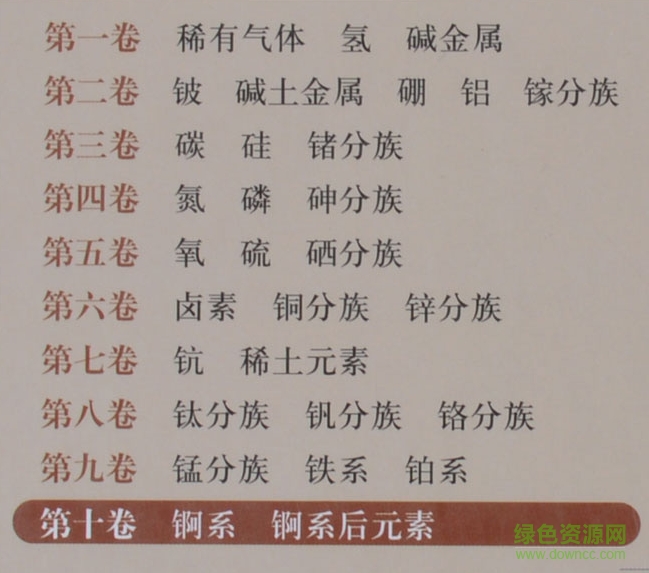 第一卷 稀有气体 氢 碱金属
第二卷 铍 碱土金属 硼 铝 镓分族
第三卷 碳 硅 锗分族
第四卷 氮 磷 砷分族
第五卷 氧 硫 硒分族
第六卷 卤素 铜分族 锌分族
第七卷 钪 稀土元素
第八卷 钛分族 钒分族 铬分族
第九卷 锰分族 铁系 铂系
第十卷 锕系 锕系后元素
绿色资源网
www.downcc.com